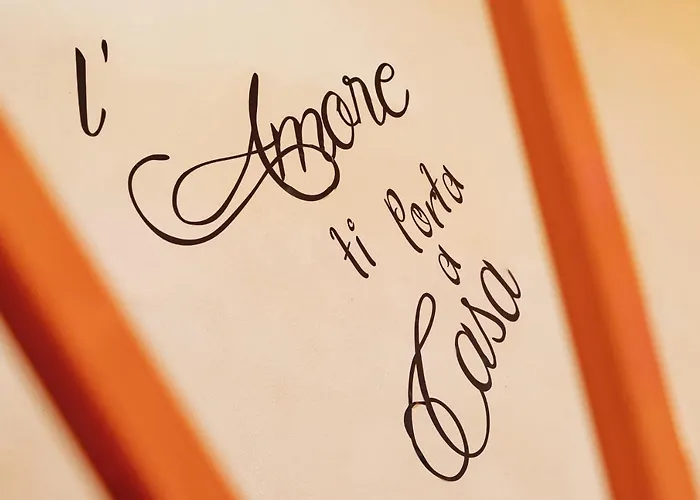 l'Amore
ti Porta
a
Casa